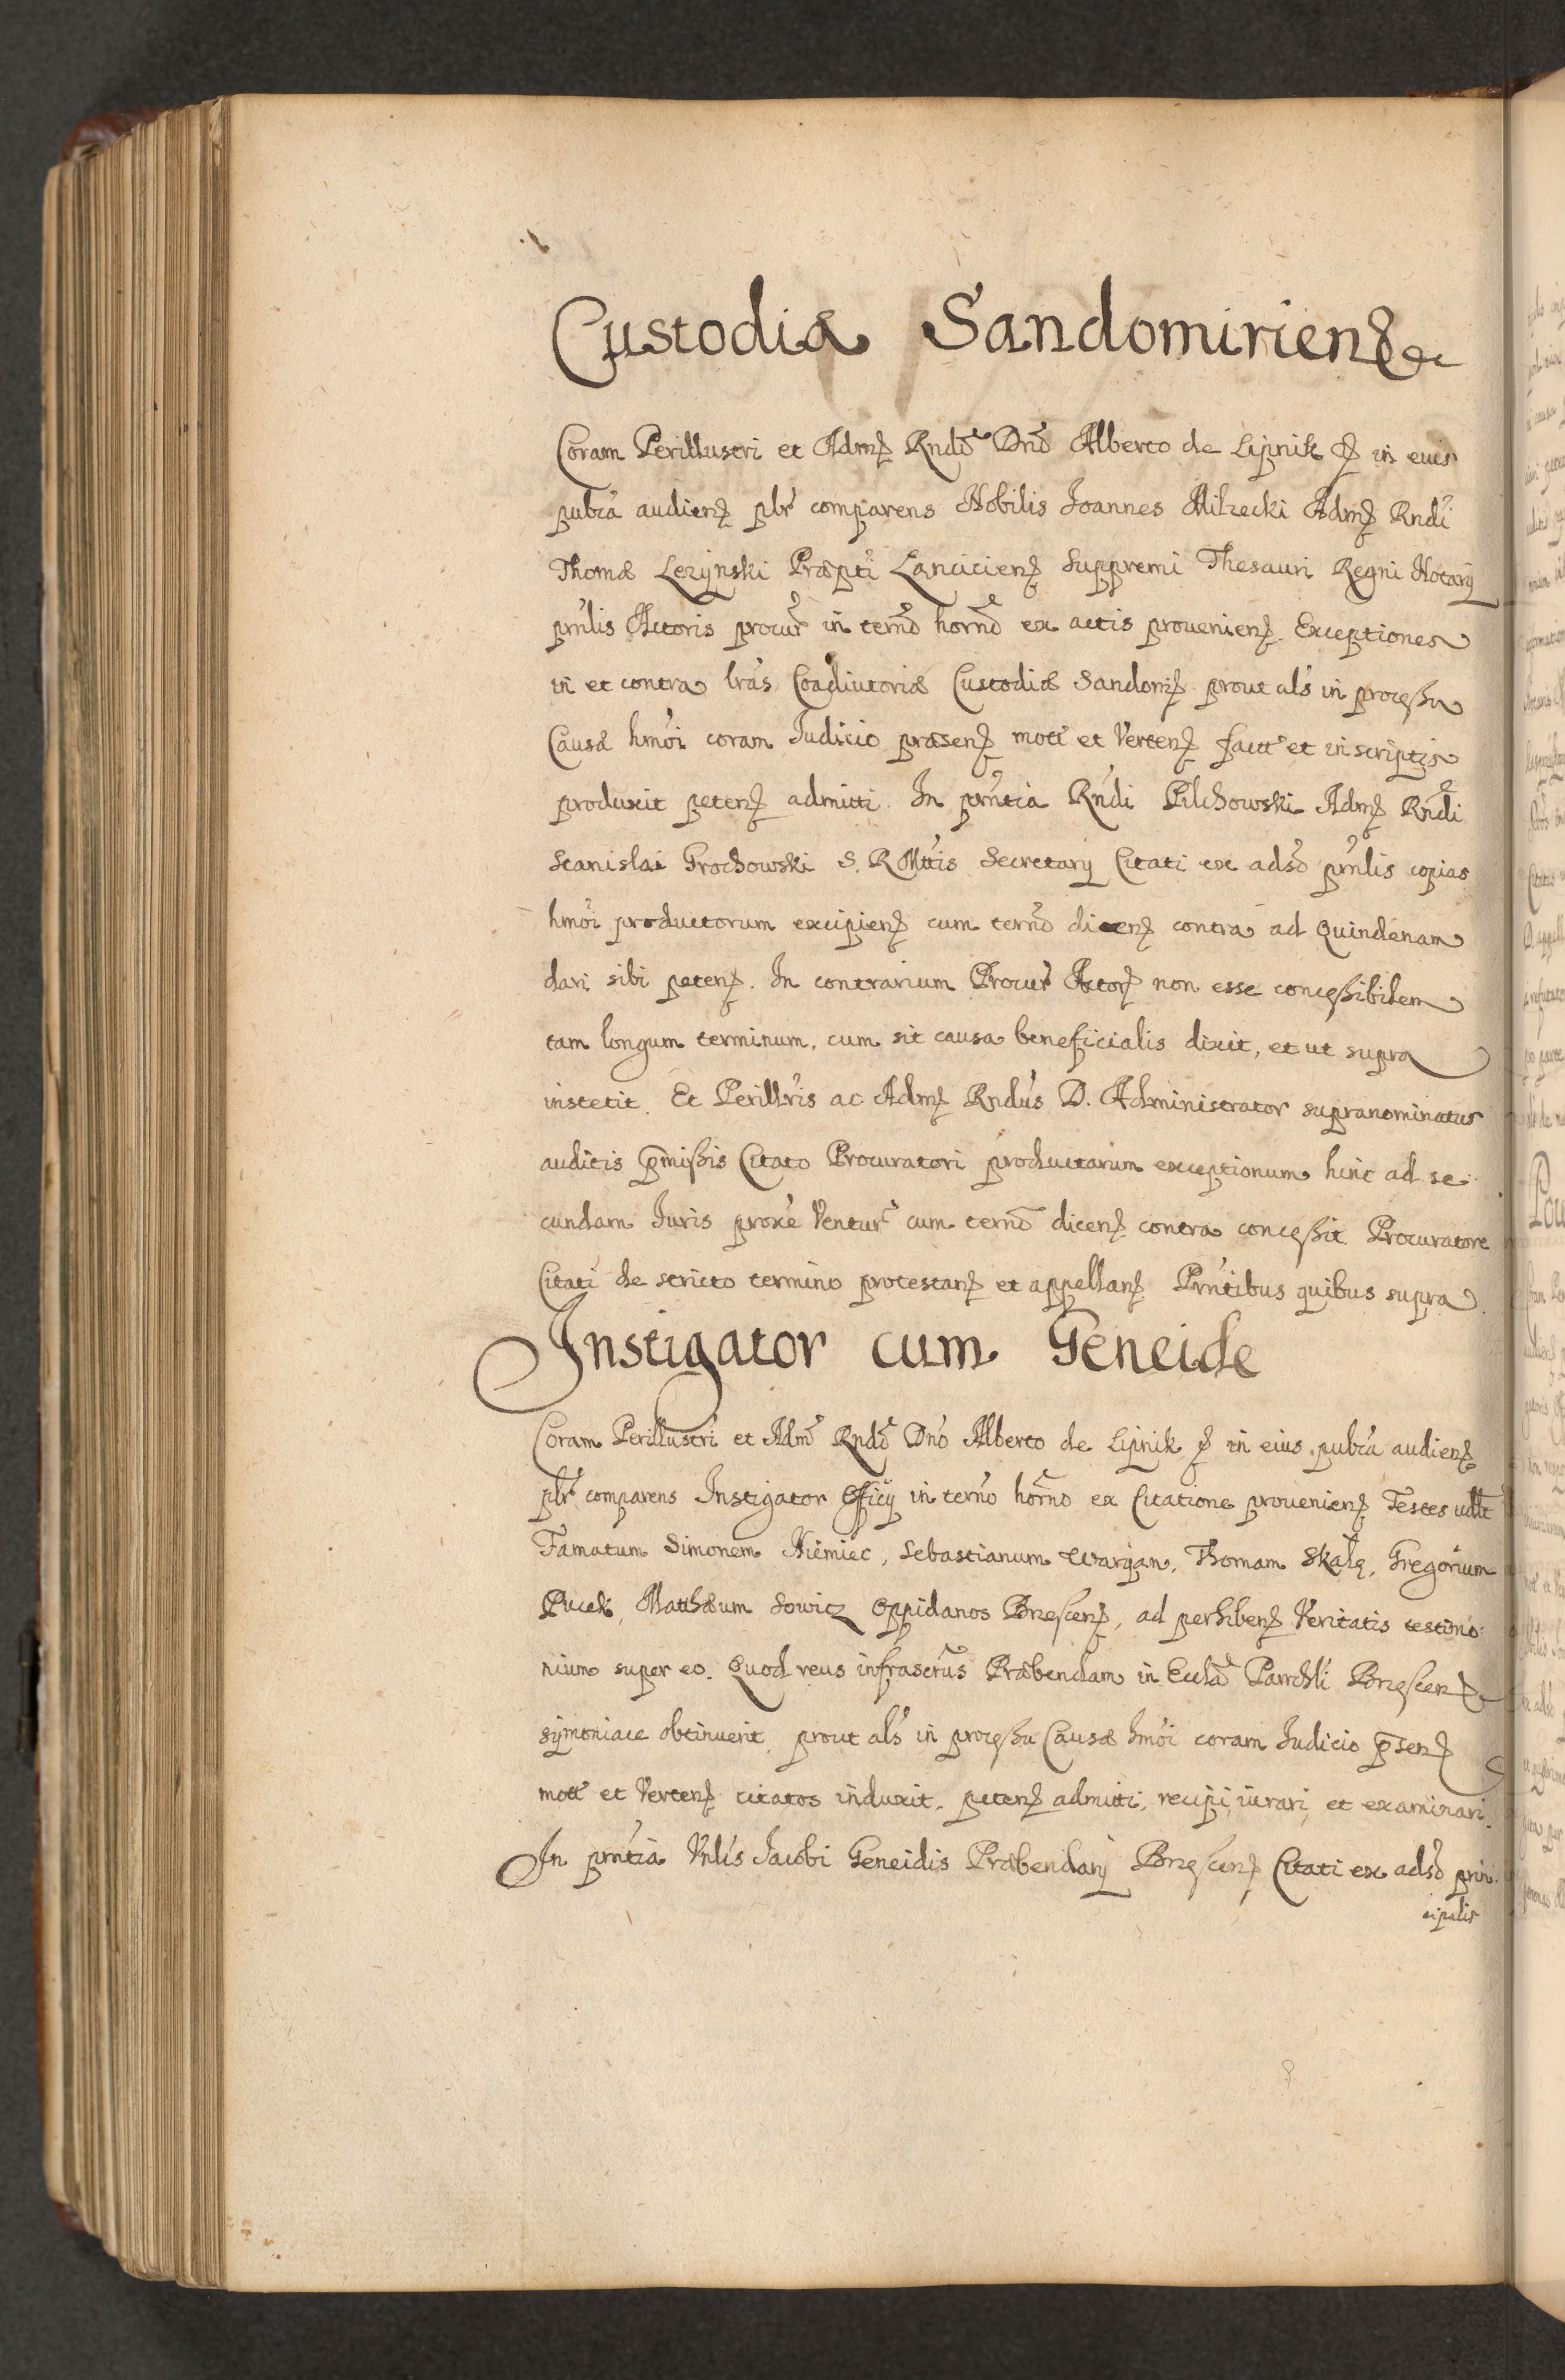 Custodia Sandomiriens etc
Coram Perillustri et Adm Rndo Dno Alberto de Lipnik etc in euis
publca audien plr comparens Nobilis Joannes Milzecki Adm Rndi
Thomæ Lezynski Præpti Lancicien Suppremi Thesauri Regni Notarij
prnlis Actoris procur in terno horno ex actis prouenien Exceptiones
in et contra lras Coadiutoriæ Custodiæ Sandomi prout als in processu
Causæ hmoi coram Judicio præsen mott et Verten fact et in scriptis
produxit peten admitti. In prntia Rndi Pilchowski Adm Rndi
Stanislai Grochowski S. R Mttis Secretarij Citati ex adso prnlis copias
hmoi productorum excipien cum terno dicen contra ad Quindenam
dari sibi peten. In contrarium Procur Actor non esse concessibilem
tam longum terminum, cum sit causa beneficialis dixit, et ut supra
institit. Et Perillris ac Adm Rndus D. Administrator supranominatus
auditis pmissis Citato Procuratori productarum exceptionum hinc ad se-
cundam Iuris proxe Ventur cum terno dicen contra concessit Procuratore
Citati de stricto termino protestan et appellan Prntibus quibus supra.
Instigator cum Geneide
Coram Perillustri et Adm Rndo Dno Alberto de Lipnik etc in eius publca audien
plr comparens Instigator Officij in terno horno ex Citatione prouenien Testes vdlt
Famatum Simonem Niemiec, Sebastianum Wargan, Thomam Skałę, Gregorium
Pucek, Matthæum Sowicz Oppidanos Brzescen, ad perhiben Veritatis testimo-
nium super eo. Quod reus infrascrus Præbendam in Eccla Parrchli Brzescen
symoniace obtinuerit, prout als in processu Causæ hmoi coram Judicio psen
mott et Verten citatos induxit, peten admitti, recipi, iurari, et examinari.
In prntia Vnlis Jacobi Geneidis Præbendarij Brzescen Citati ex adso prin-
cipalis